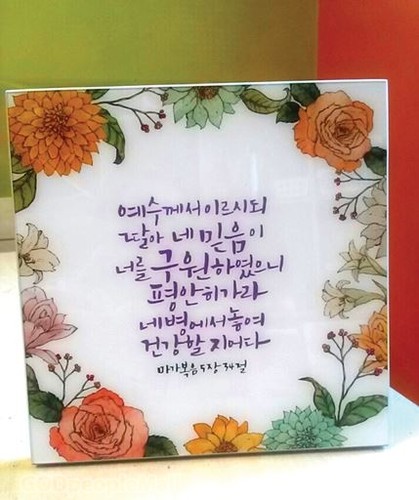 예수께서 이르시되
딸아 네 믿음이
너를 구원하였으니
평안히 가라
네 병에서 놓여
건강할 지어다
마가복음 5장 34절